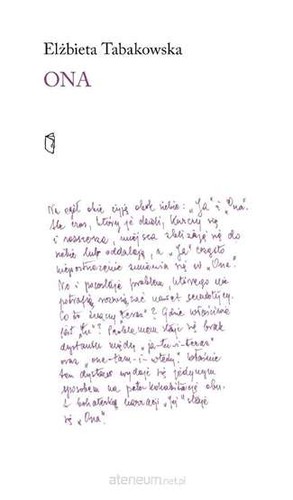 Elżbieta Tabakowska
ONA
Na ogół obie żyją obok siebie: „Ja” i „Ona”.
Ale czas, który je dzieli, kurczy się
i rozszerza, miejsca zbliżają się do
siebie lub oddalają, a „Ja” często
niepostrzeżenie zmienia się w „Ona”.
No i pozostaje problem, którego nie
potrafią rozwiązać nawet semiotycy.
Co to znaczy „teraz”? Gdzie właściwie
jest „tu”? Problemem staje się brak
dystansu między „ja-tu-i-teraz”
oraz „one-tam-i-wtedy”. Właśnie
ten dystans wydaje się jedynym
sposobem na kohabitację obu.
I bohaterką narracji „Jej” staje
się „Ona”.
ateneum.net.pl